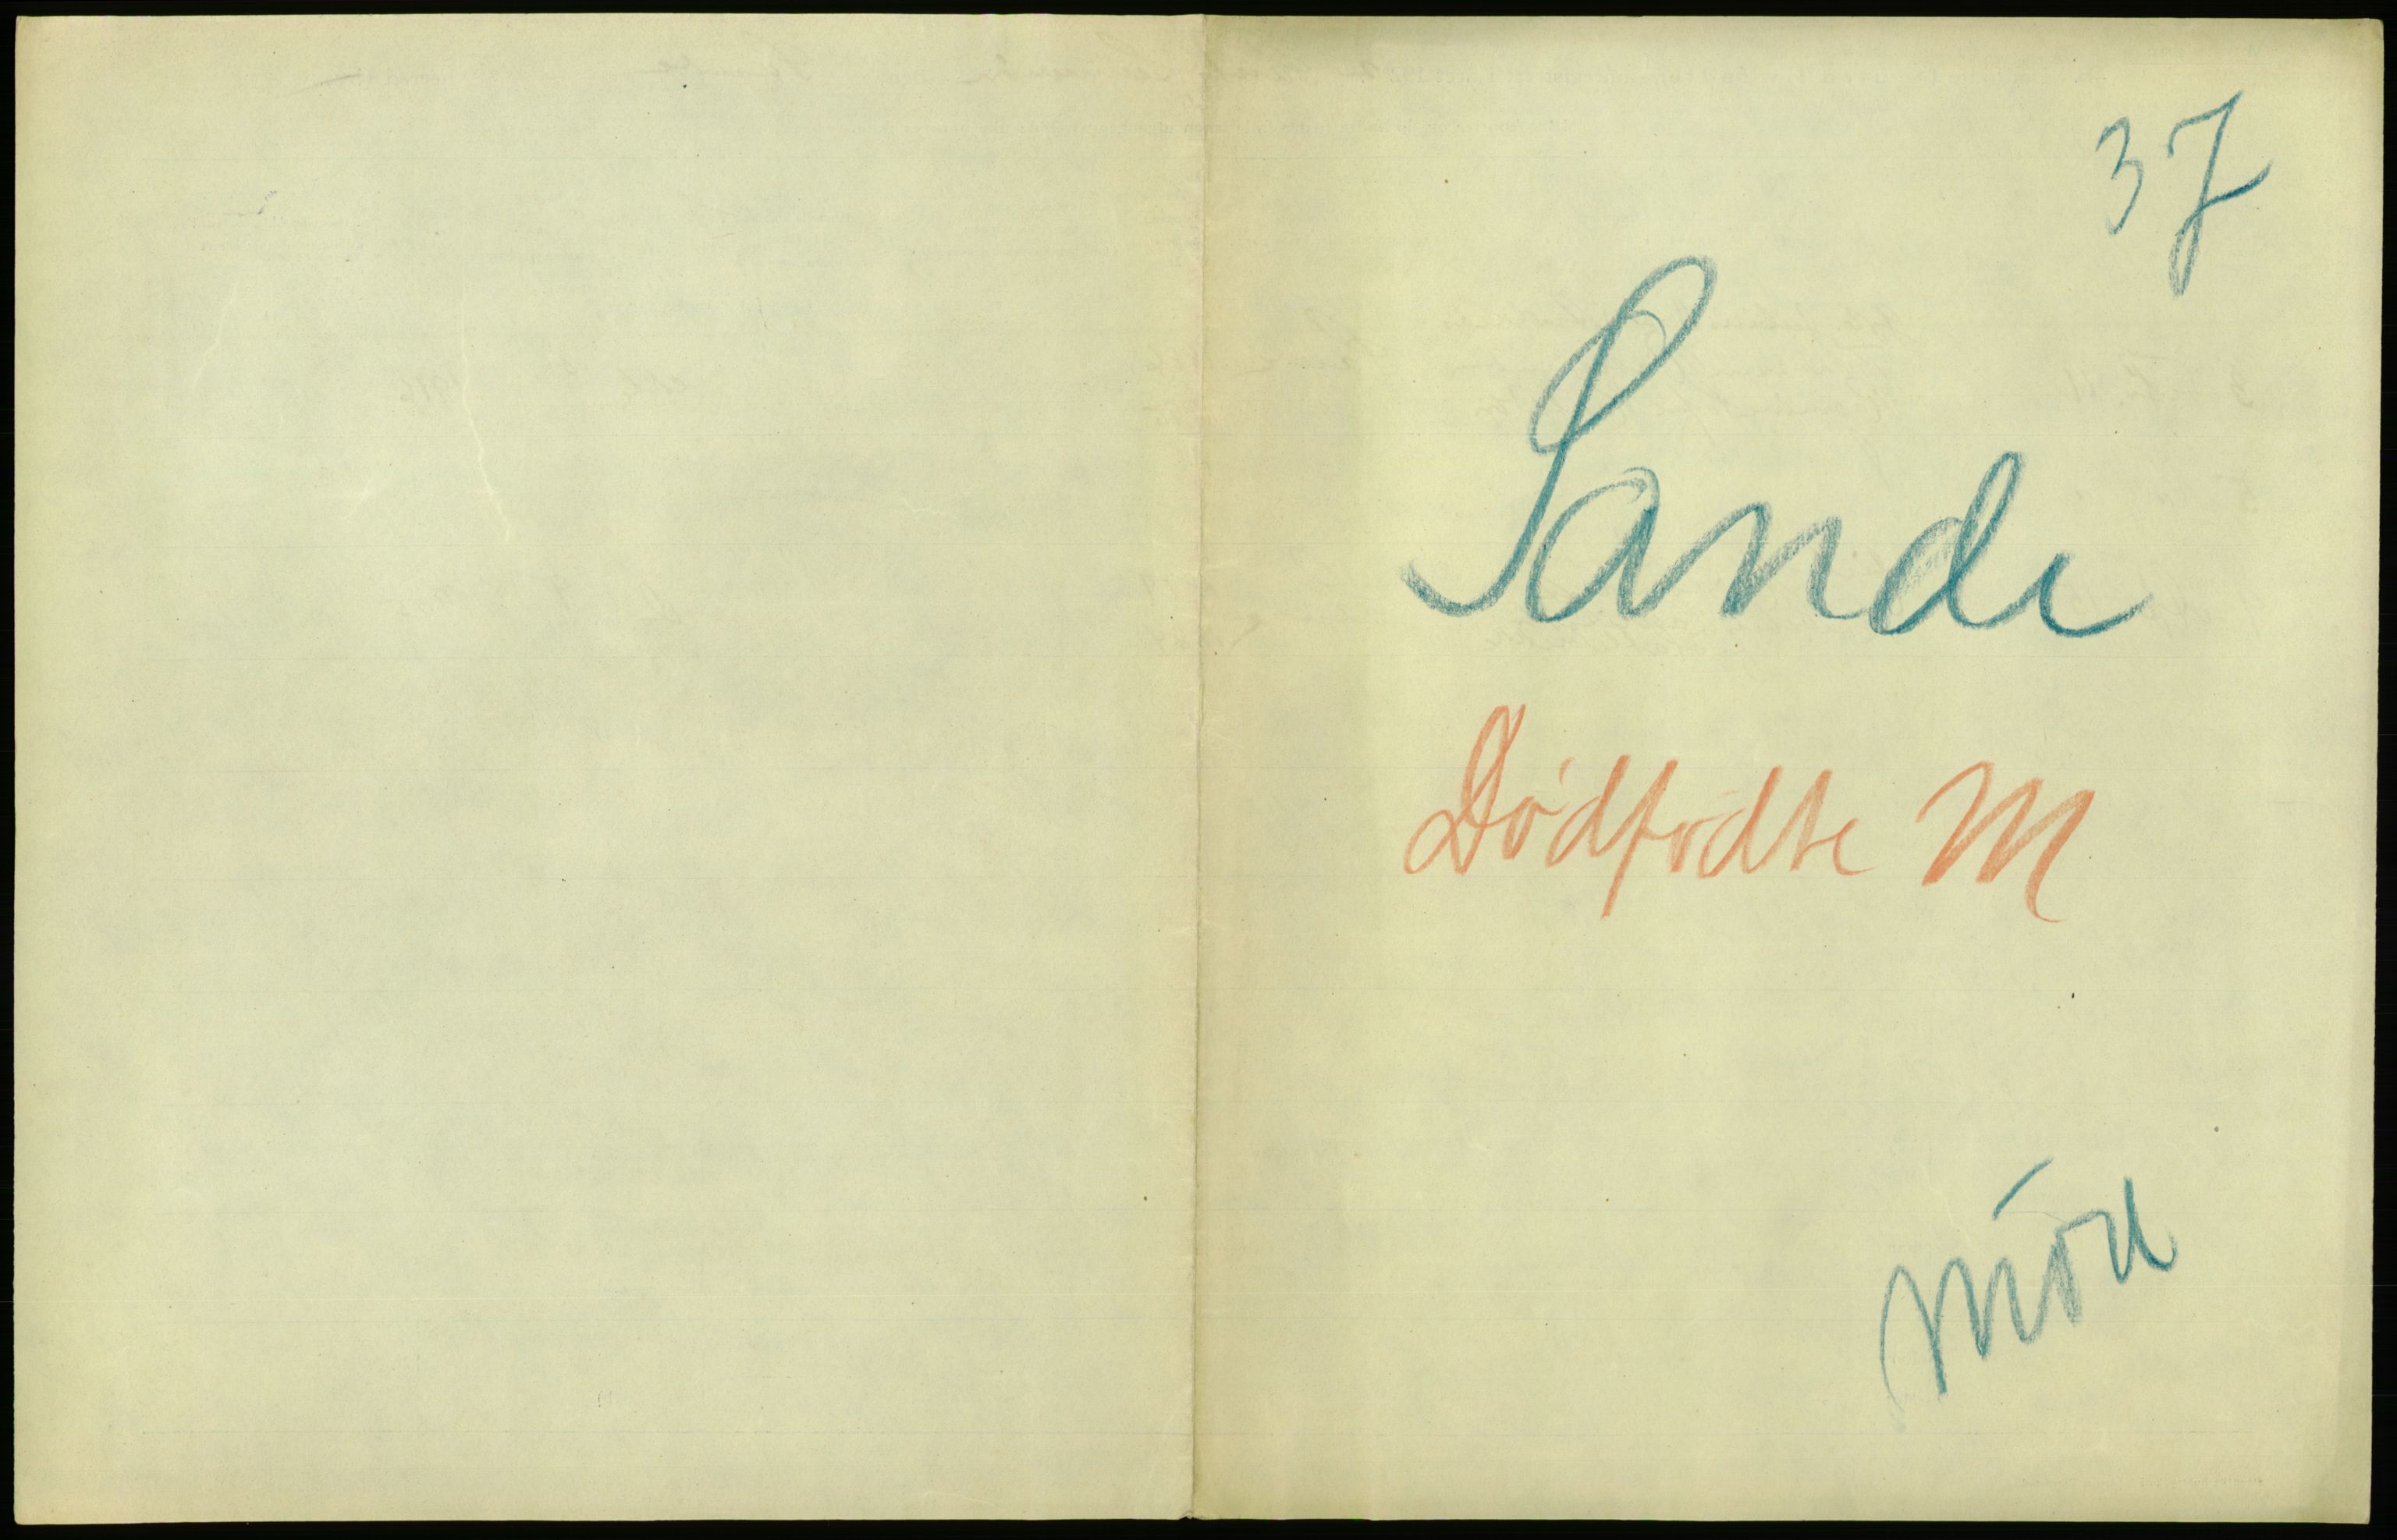 37
Sande
Dødfødte M